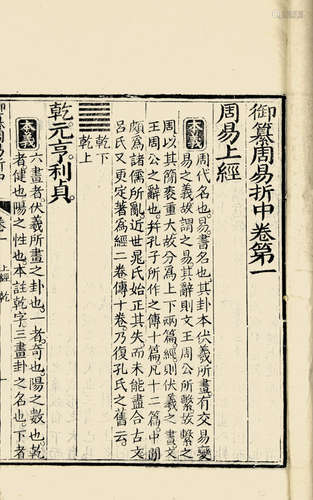 御纂周易折中卷第一
周易上經
本義
周代名也易書名也其卦本伏羲所畫有交易變
易之義故謂之易其辭則文王周公所繫故繫之
周以其簡袠重大故分為上下兩篇經則伏羲之畫文
王周公之辭也并孔子所作之傳十篇凡十二篇中間
頗為諸儒所亂近世晁氏始正其失而未能盡合古文
呂氏又更定著為經二卷傳十卷乃復孔氏之舊云
乾下
乾上
乾元亨利貞
本義
六畫者伏羲所畫之卦也一者奇也陽之數也乾
者健也陽之性也本註乾字三畫卦之名也下者
御纂周易折中
卷一
上經 乾